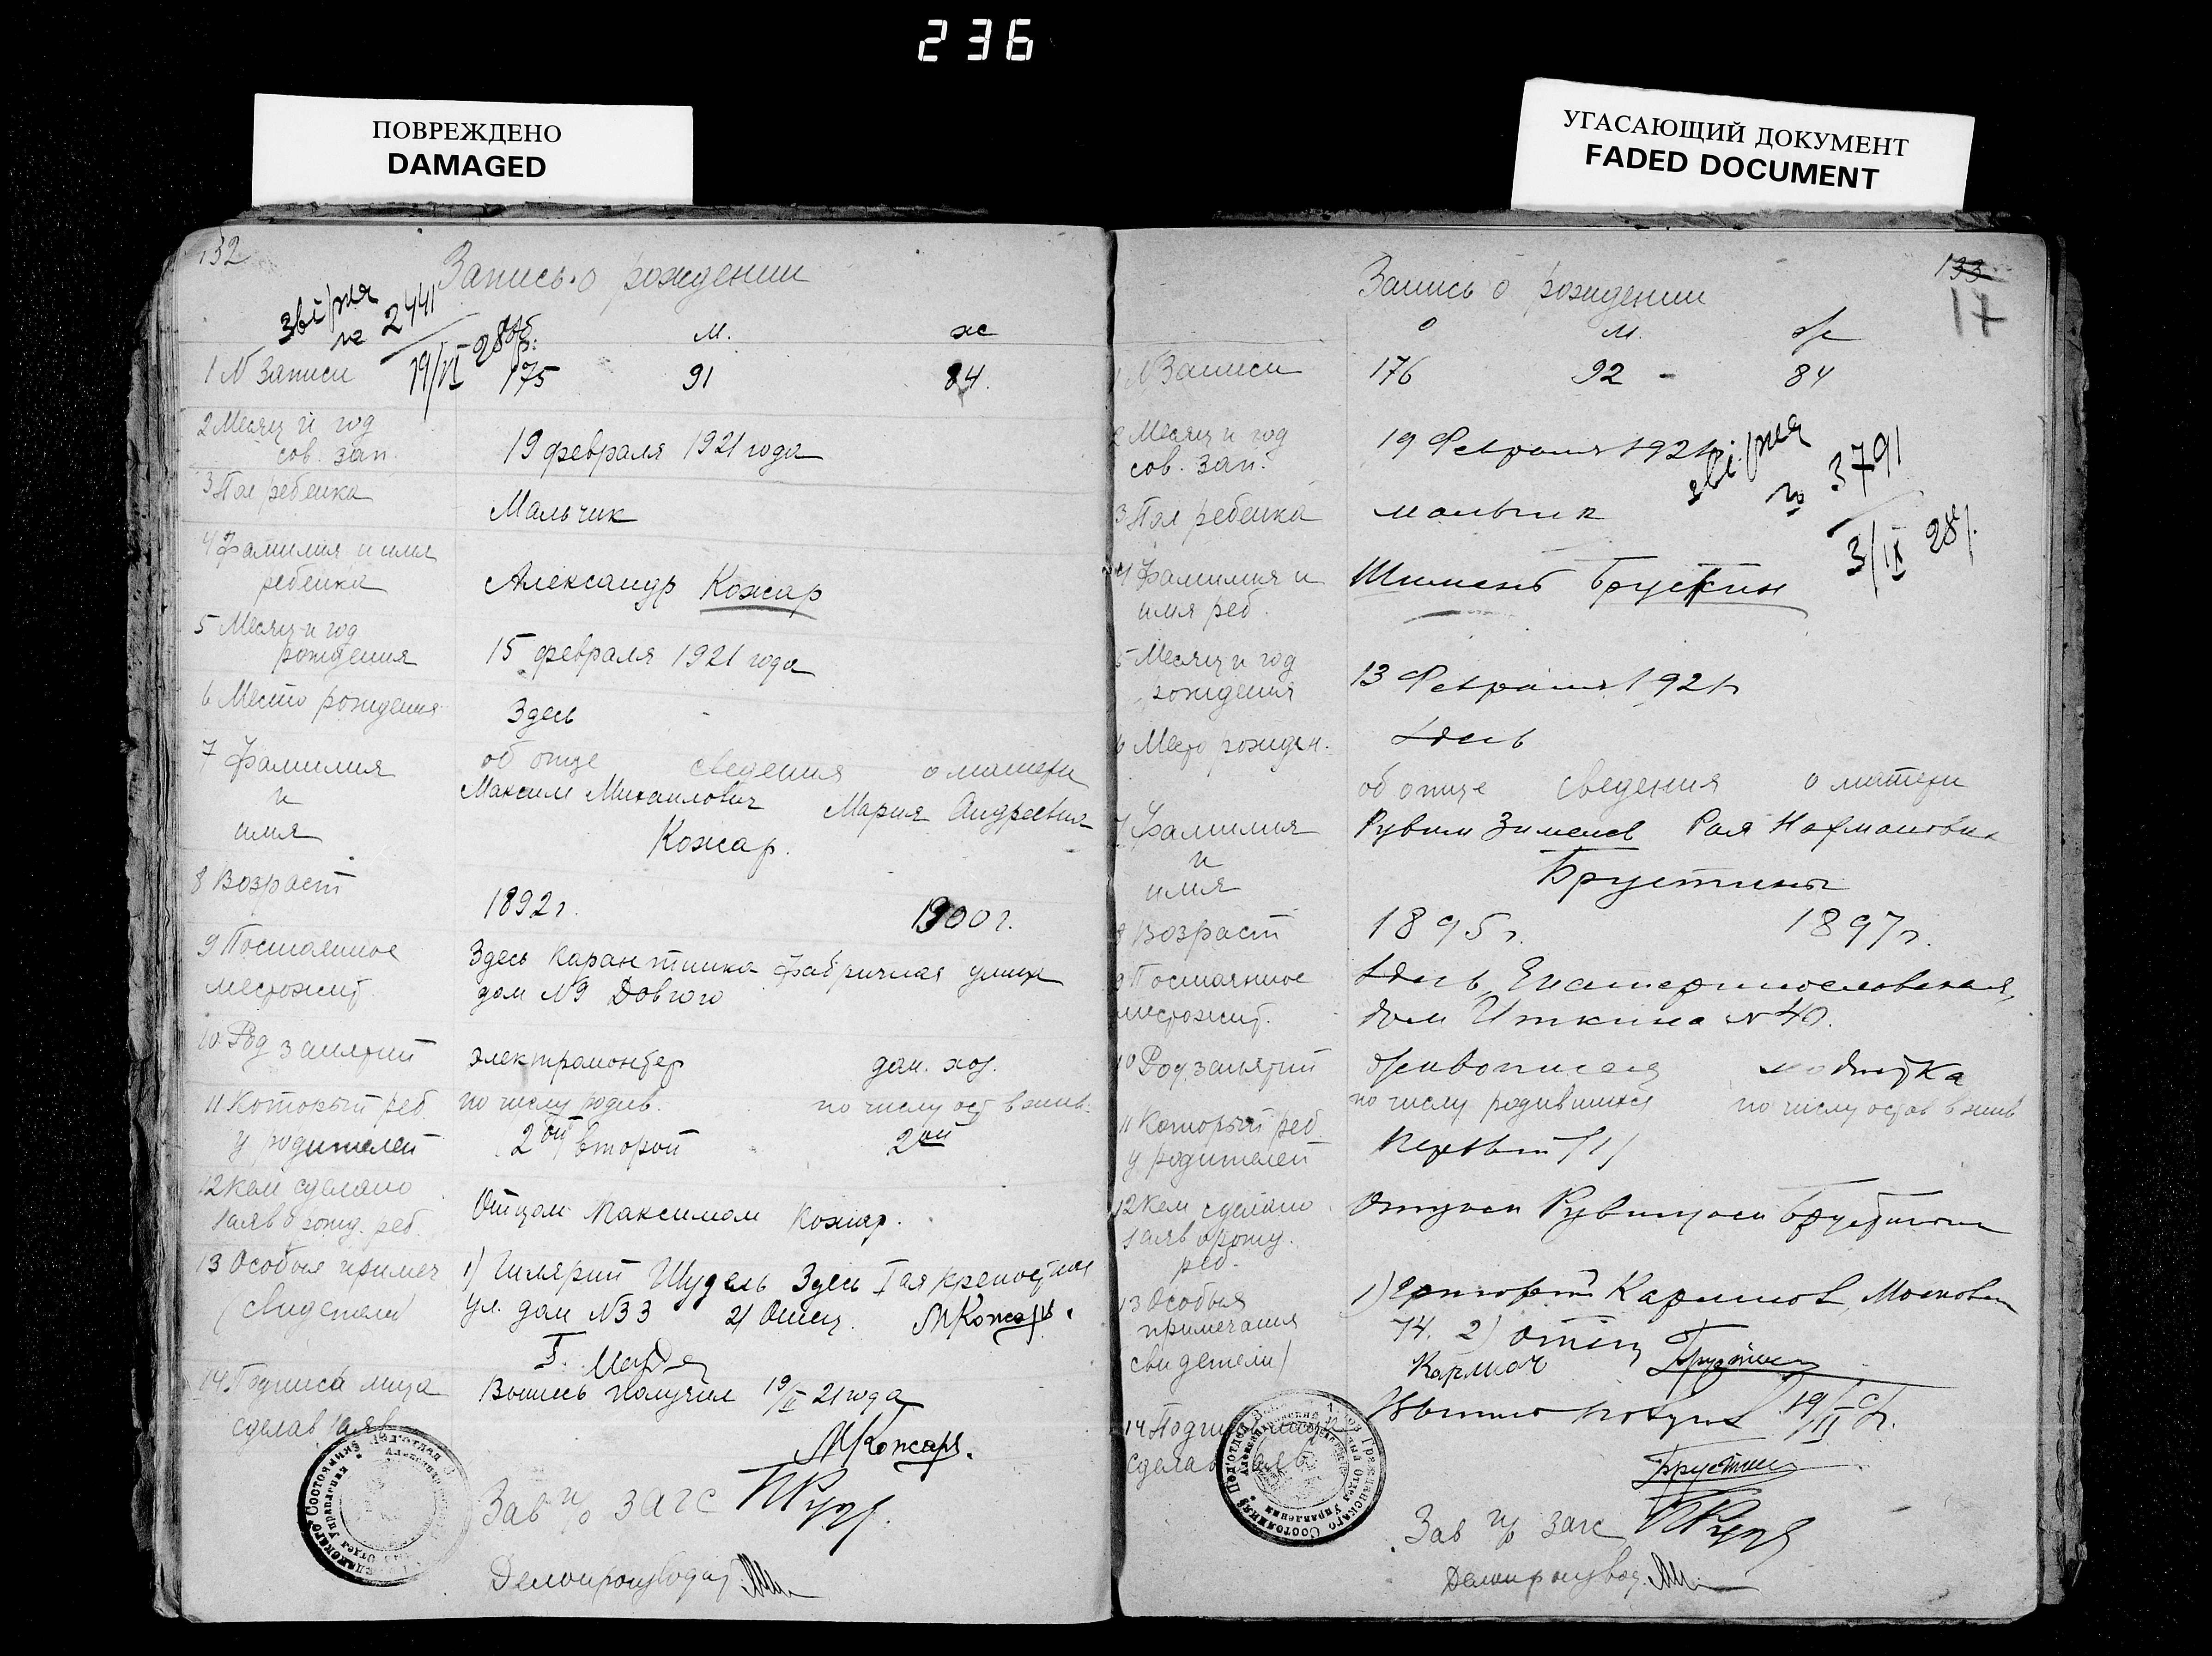 236
ПОВРЕЖДЕНО
DAMAGED
УГАСАЮЩИЙ ДОКУМЕНТ
FADED DOCUMENT
132
Запись о рождении
звірка
№ 2441
19/VI 28р.
об. м. ж
1 N Записи 175 91 84.
2 Месяц и год
сов. зап. 19 февраля 1921 года
3 Пол ребенка Мальчик
4 Фамилия и имя
ребенка Александр Кожар
5 Месяц и год
рождения 15 февраля 1921 года
6 Место рождения Здесь
7 Фамилия об отце сведения о матери
и Максим Михаилович Мария Андреевна
имя Кожар.
8 Возраст 1892 г. 1900 г.
9 Постоянное Здесь Карантинка Фабричная улица
местожит. дом N9 Довгого
10 Род занятий электромонтер дом. хоз.
11 Который реб. по числу родив. по числу ост в жив.
у родителей 2ой второй 2ой
12 Кем сделано
заяв о рожд. реб. Отцом Максимом Кожар.
13 Особыя примеч 1) Гилярий Шудель Здесь Iая крепостная
(свидетели) ул. дом N33 2) Отец. МКожаръ.
14 Подписа лица Выпись получил 19/II 21 года
сделав заяв МКожаръ.
Зав п/о загс
Делопроизвод
133
17
Запись о рождении
о м. ж
1 N Записи 176 92 - 84
2 Месяц и год
сов. зап. 19 Февраля 1921 г
звірка
№ 3791
3/IX 28р.
3 Пол ребенка мальчик
4 Фамилия и Шимен Брустин
имя реб.
5 Месяц и год
рождения 13 Февраля 1921 г
6 Место рожден. Здесь
об отце сведения о матери
7 Фамилия Рувим Зимелев Рая Нахмановна
и
имя Брустины
8 Возраст 1895 г. 1897 г.
9 Постоянное Здесь, Екатеринославская,
местожит. дом Иткина N 40.
10 Род занятий живописец модистка
по числу родившихся по числу остав в жив
11 Который реб.
у родителей Первый /1/
12 Кем сделано Отцом Рувимом Брустиным
заяв о рожд.
реб.
13 Особыя 1) Григорий Карпинов, Московск
примечания 74. 2) Отец Брустин
свидетели)
14 Подпис лица Выпись получил 19/II с/г.
сделав заяв Брустин
Зав п/о загс
Делопроизвод.